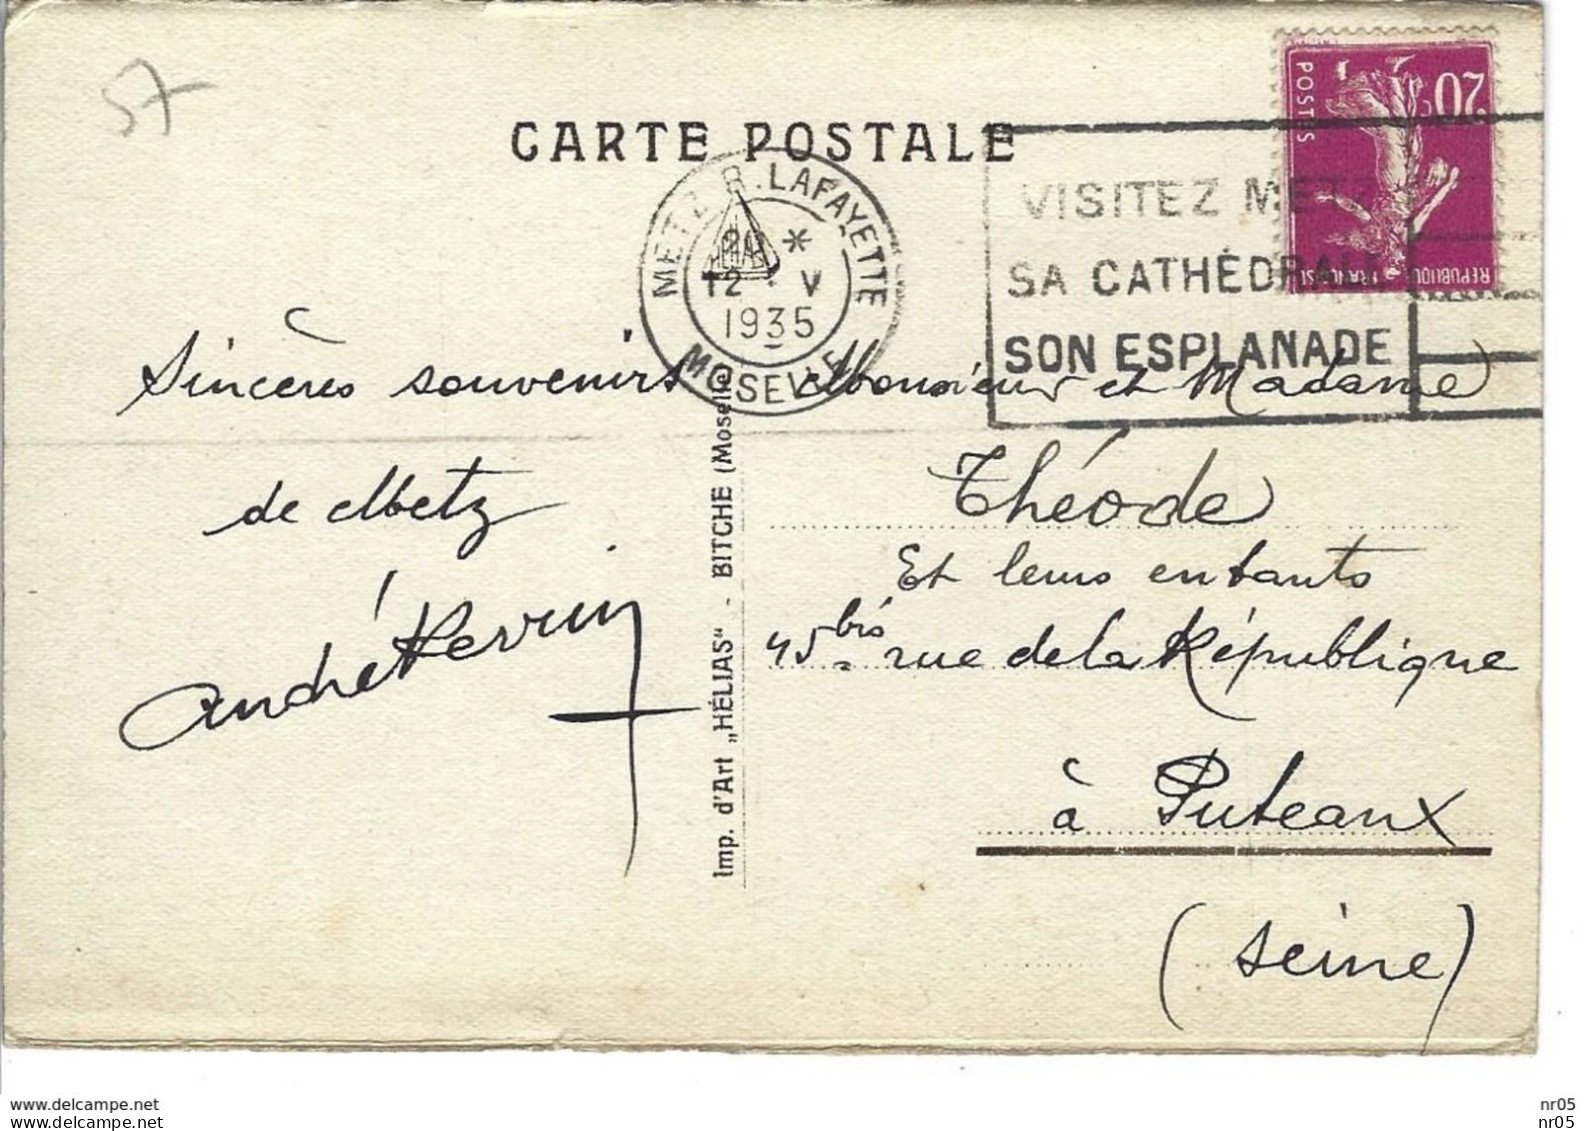 57
CARTE POSTALE
METZ R. LAFAYETTE
20 *
12 · V
1935
MOSELLE
VISITEZ METZ
SA CATHÉDRALE
SON ESPLANADE
20c
POSTES
REPUBLIQUE FRANÇAISE
Sincères souvenirs
de Metz
André
Imp. d'Art „HÉLIAS" - BITCHE (Moselle)
Monsieur et Madame
Théode
Et leurs enfants
45 bis rue de la République
à Puteaux
(Seine)
www.delcampe.net
www.delcampe.net
nr05
nr05